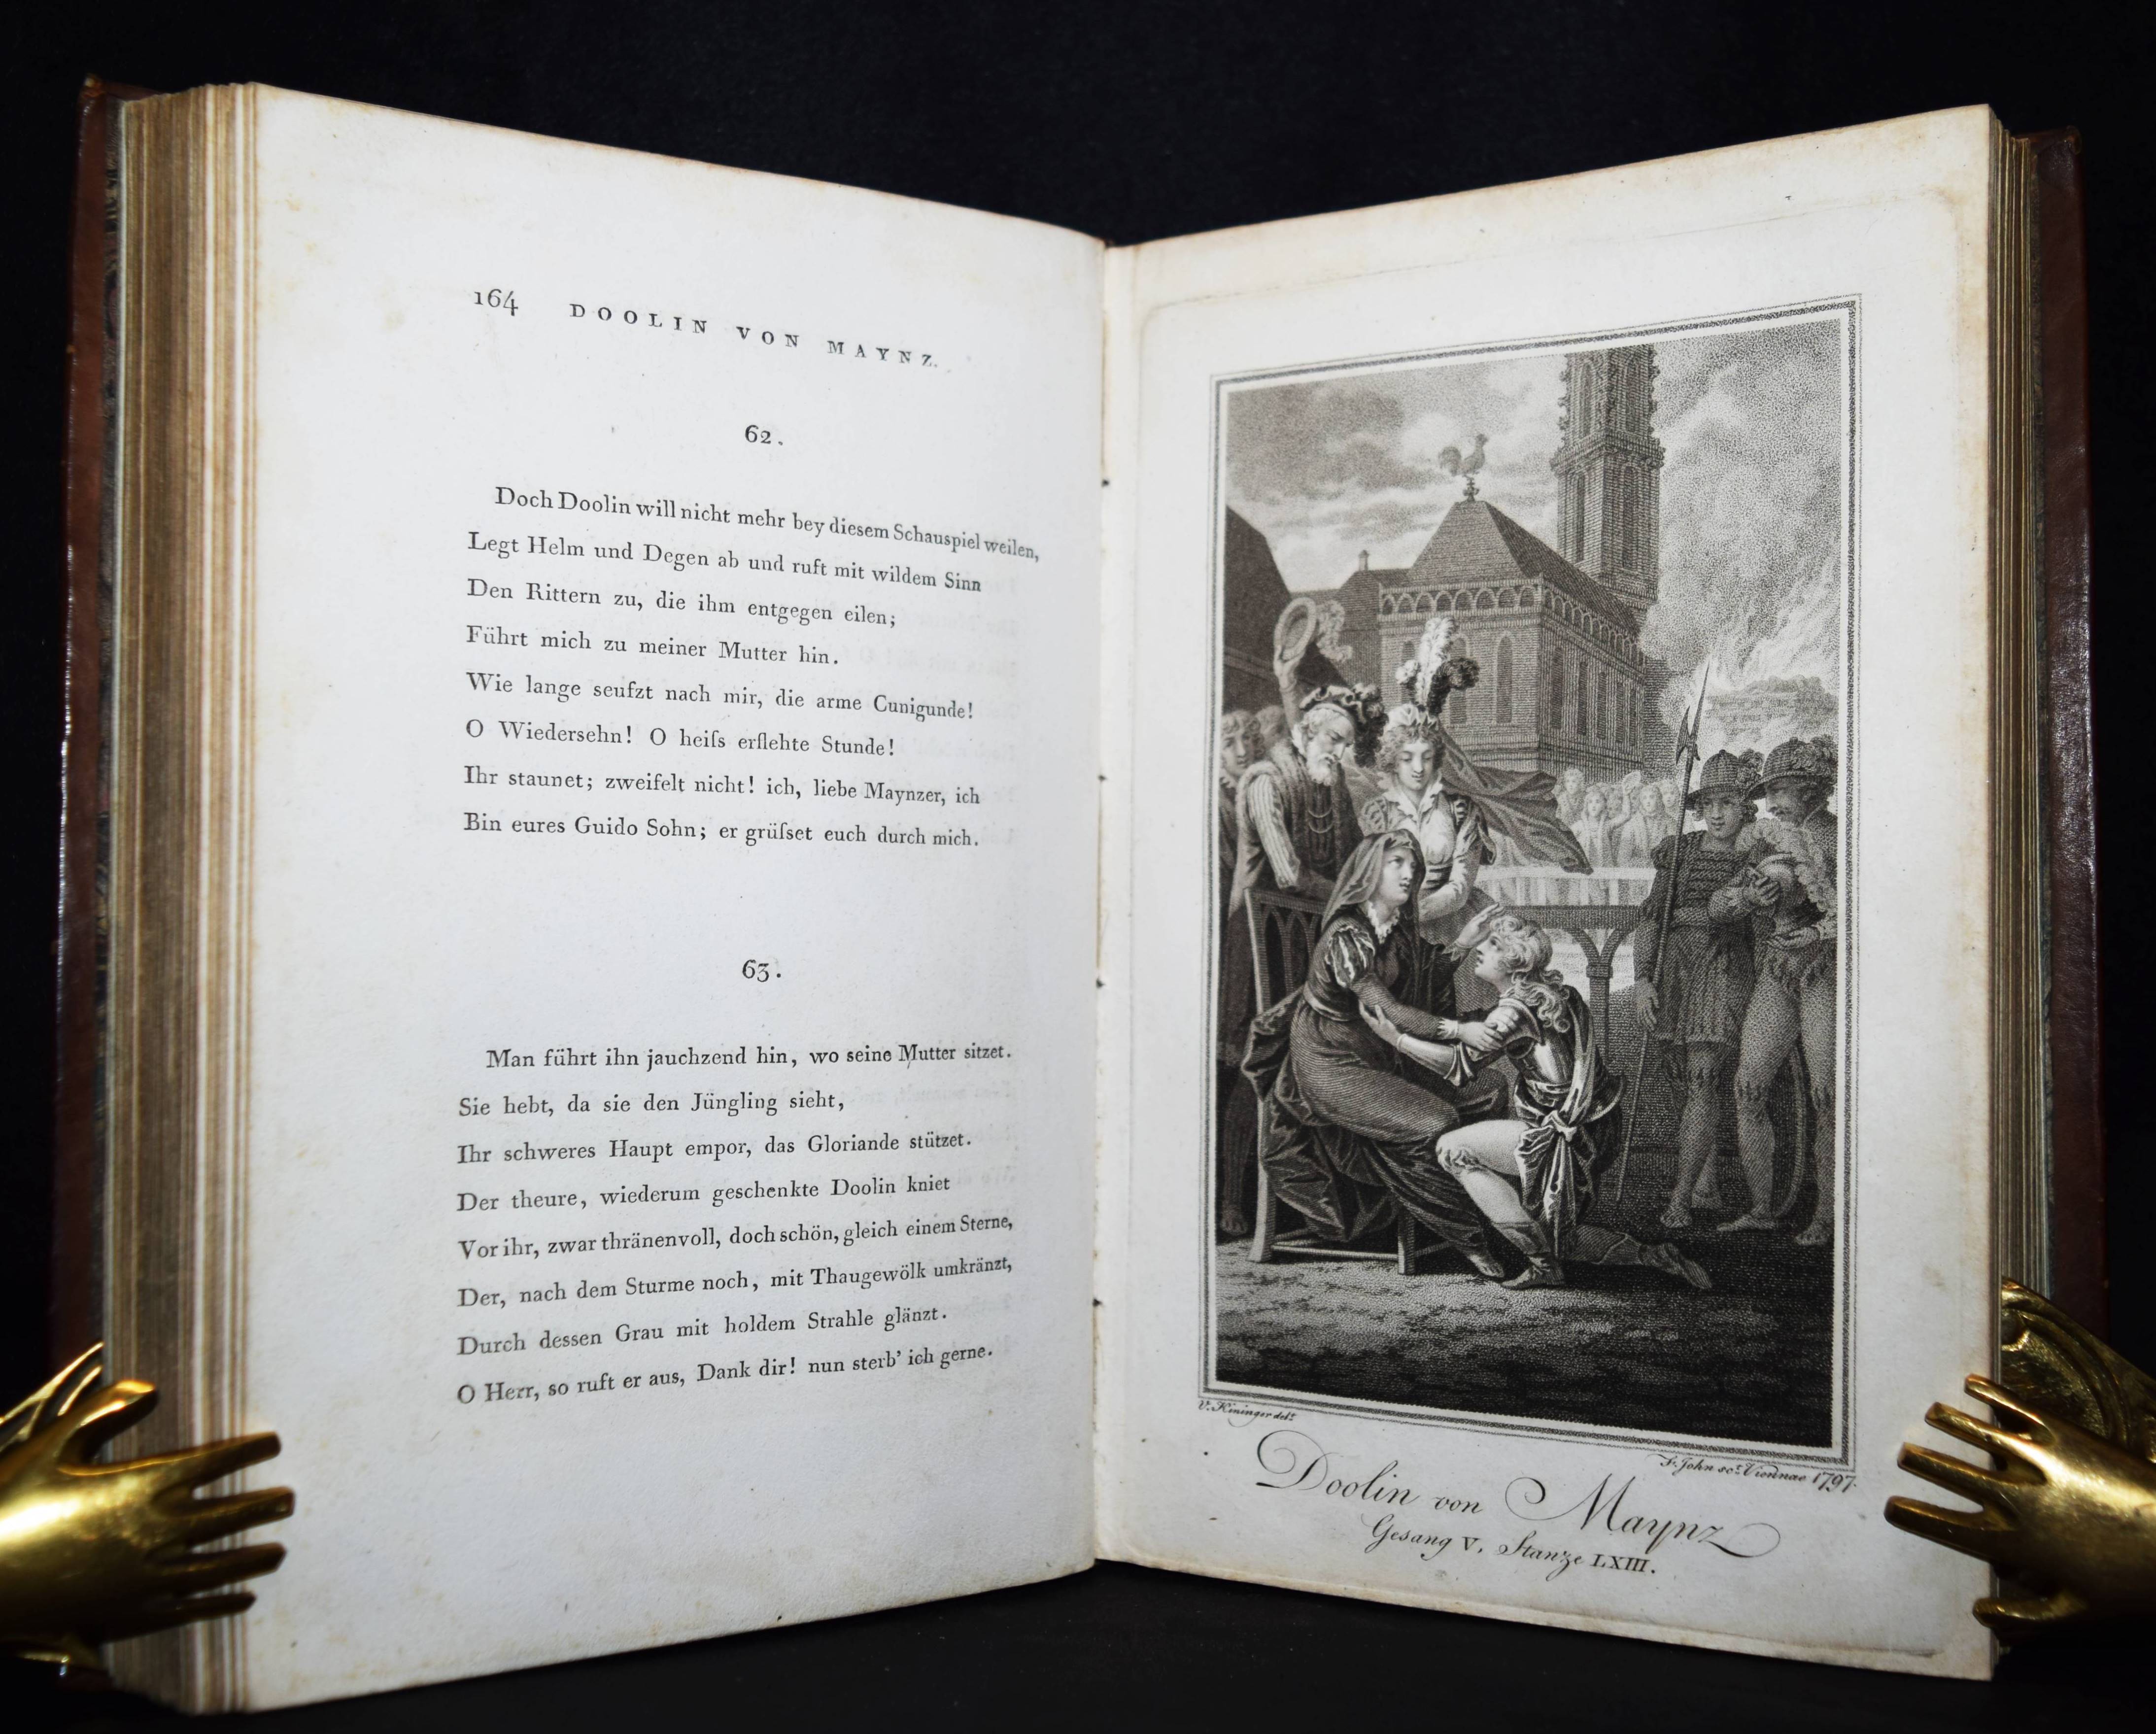 164 DOOLIN VON MAYNZ.
62.
Doch Doolin will nicht mehr bey diesem Schauspiel weilen,
Legt Helm und Degen ab und ruft mit wildem Sinn
Den Rittern zu, die ihm entgegen eilen;
Führt mich zu meiner Mutter hin.
Wie lange seufzt nach mir, die arme Cunigunde!
O Wiedersehn! O heiſs erflehte Stunde!
Ihr staunet; zweifelt nicht! ich, liebe Maynzer, ich
Bin eures Guido Sohn; er grüſset euch durch mich.
63.
Man führt ihn jauchzend hin, wo seine Mutter sitzet.
Sie hebt, da sie den Jüngling sieht,
Ihr schweres Haupt empor, das Gloriande stützet.
Der theure, wiederum geschenkte Doolin kniet
Vor ihr, zwar thränenvoll, doch schön, gleich einem Sterne,
Der, nach dem Sturme noch, mit Thaugewölk umkränzt,
Durch dessen Grau mit holdem Strahle glänzt.
O Herr, so ruft er aus, Dank dir! nun sterb' ich gerne.
V. Kininger delt
F. John sct Viennae 1797.
Doolin von Maynz
Gesang V. Stanze LXIII.